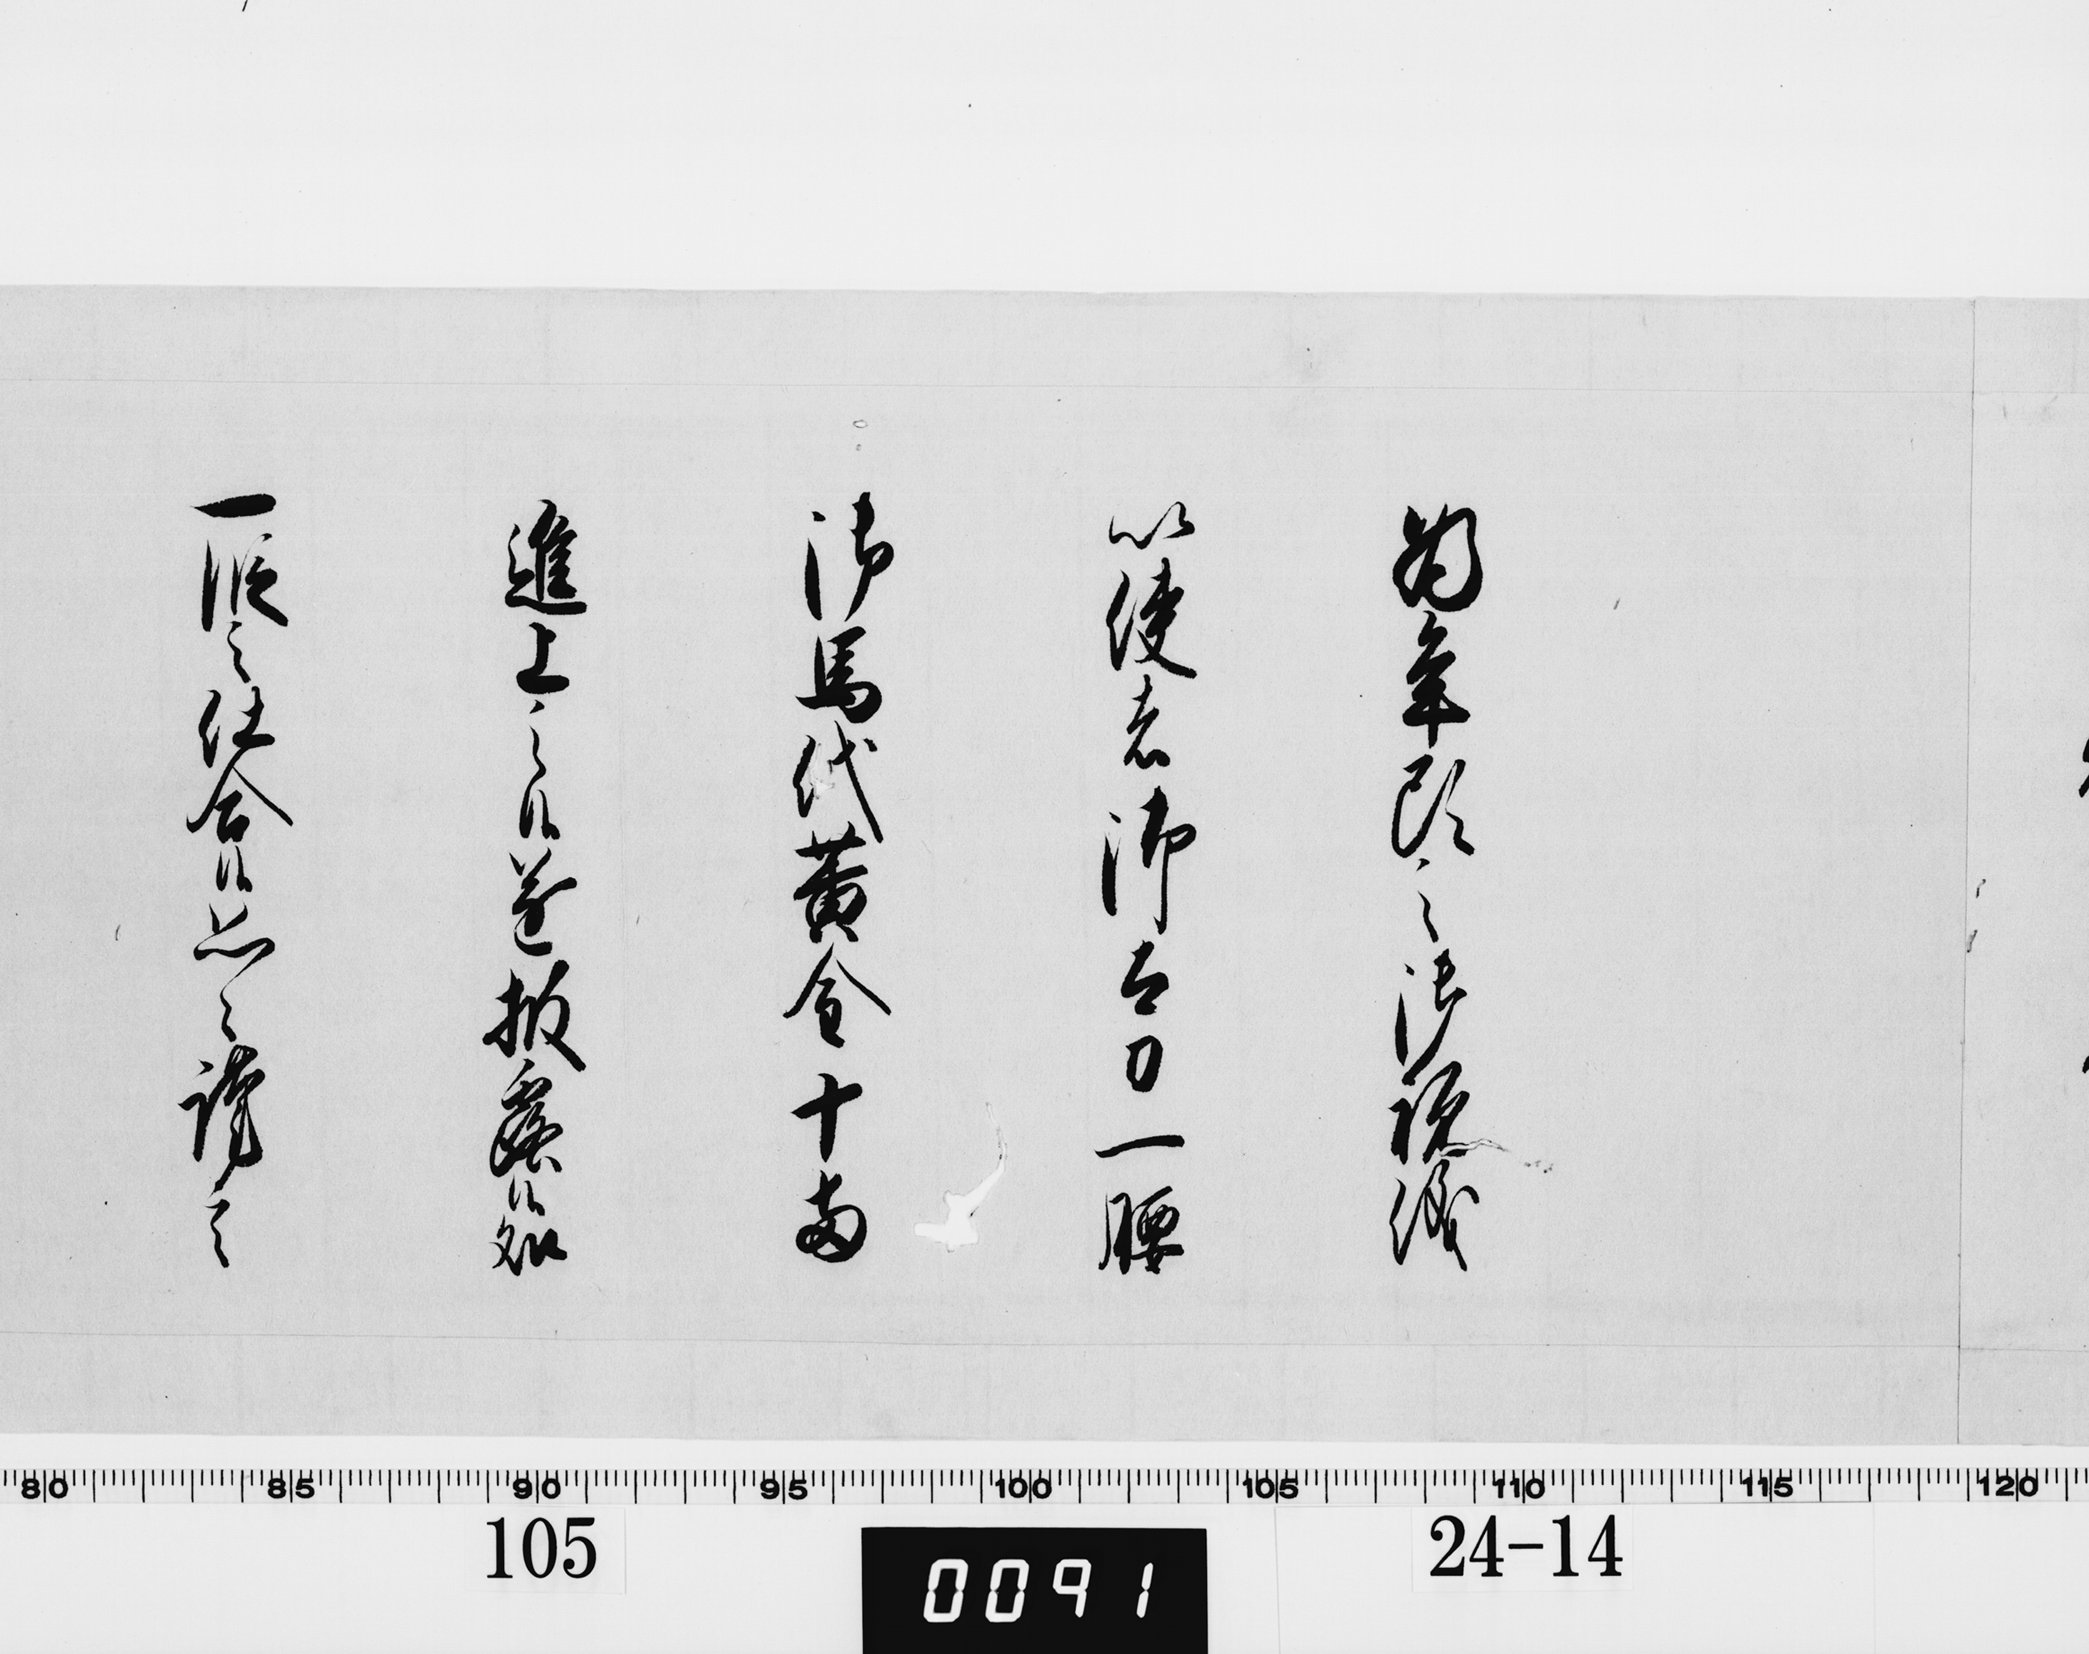 為年頭之御祝儀
以使者御太刀一腰
御馬代黄金十両
進上之候遂披露候処
一段之仕合候恐々謹言
80 85 90 95 100 105 110 115 120
105
0091
24-14